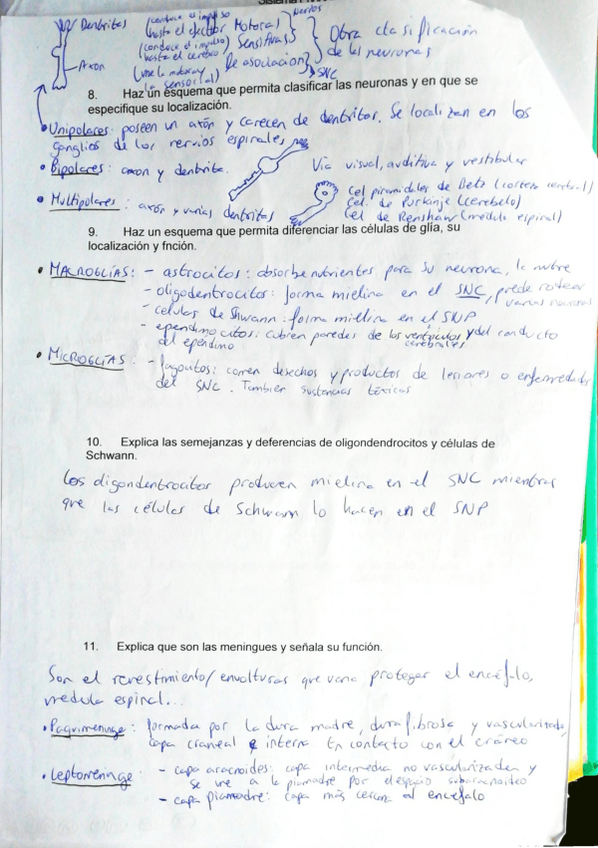 Dendritas
(conduce el impulso hasta el efector) Motoras
(conduce el impulso hasta el cerebro) Sensitivas
nervios
Otra clasificación de las neuronas
Axón
(une la motora y la sensorial) De asociación
SNC
8. Haz un esquema que permita clasificar las neuronas y en que se
especifique su localización.
• Unipolares: poseen un axón y carecen de dentritas. Se localizan en los
ganglios de los nervios espinales
• Bipolares: axon y dentrita. Vía visual, auditiva y vestibular
• Multipolares: axón y varias dentritas
Cel piramidales de Betz (corteza cerebral)
Cel. de Purkinje (cerebelo)
Cel de Renshaw (medula espinal)
9. Haz un esquema que permita diferenciar las células de glía, su
localización y fnción.
• MACROGLÍAS: - astrocitos: absorbe nutrientes para su neurona, la nutre
- oligodentrocitos: forma mielina en el SNC, puede rodear
varias neuronas
- celulas de Shwann: forma mielina en el SNP
- ependimocitos: cubren paredes de los ventriculos cerebrales y del conducto
del ependimo
• MICROGLÍAS - fagocitos: comen desechos y productos de lesiones o enfermedades
del SNC. Tambien sustancias tóxicas
10. Explica las semejanzas y deferencias de oligondendrocitos y células de
Schwann.
Los oligondentrocitos producen mielina en el SNC mientras
que las células de Schwann lo hacen en el SNP
11. Explica que son las meningues y señala su función.
Son el revestimiento/envolturas que van a proteger el encéfalo,
medula espinal...
• Paquimeninge: formada por la dura madre, dura fibrosa y vascularizada,
capa craneal e interna En contacto con el cráneo
• Leptomeninge: - capa aracnoides: capa intermedia no vascularizada y
se une a la piamadre por el espacio subaracnoideo
- capa piamadre: capa más cercana al encéfalo